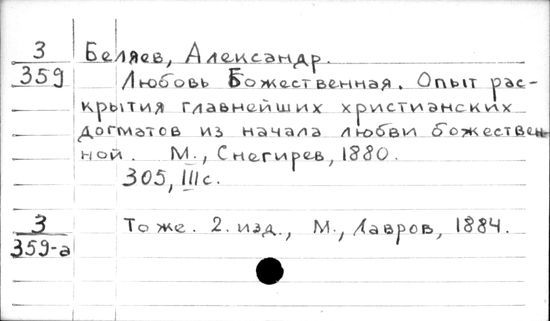 З Беляев, Александр.
359 Любовь Божественная. Опыт рас-
крытия главнейших христианских
догматов из начала любви божествен-
ной. М., Снегирев, 1880.
305, III с.
З То же. 2. изд., М., Лавров, 1884.
359-а